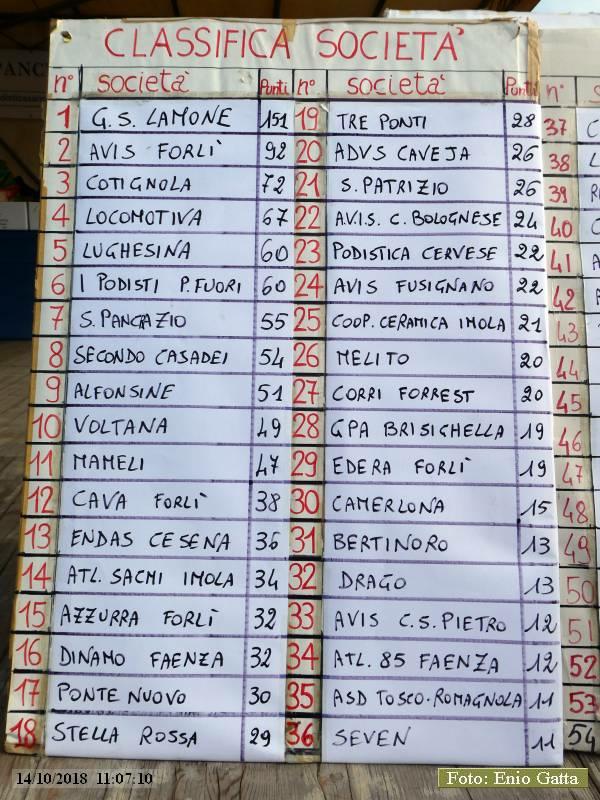 CLASSIFICA SOCIETA'
n° società Punti n° società Punti n°
1 G.S. LAMONE 151
2 AVIS FORLÌ 92
3 COTIGNOLA 72
4 LOCOMOTIVA 67
5 LUGHESINA 60
6 I PODISTI P. FUORI 60
7 S. PANCRAZIO 55
8 SECONDO CASADEI 54
9 ALFONSINE 51
10 VOLTANA 49
11 MAMELI 47
12 CAVA FORLÌ 38
13 ENDAS CESENA 36
14 ATL. SACMI IMOLA 34
15 AZZURRA FORLÌ 32
16 DINAMO FAENZA 32
17 PONTE NUOVO 30
18 STELLA ROSSA 29
19 TRE PONTI 28
20 ADVS CAVEJA 26
21 S. PATRIZIO 26
22 A.V.I.S. C. BOLOGNESE 24
23 PODISTICA CERVESE 22
24 AVIS FUSIGNANO 22
25 COOP. CERAMICA IMOLA 21
26 MELITO 20
27 CORRI FORREST 20
28 GPA BRISIGHELLA 19
29 EDERA FORLÌ 19
30 CAMERLONA 15
31 BERTINORO 13
32 DRAGO 13
33 AVIS C.S. PIETRO 12
34 ATL. 85 FAENZA 12
35 ASD TOSCO-ROMAGNOLA 11
36 SEVEN 11
37
38
39
40
41
42
43
44
45
46
47
48
49
50
51
52
53
54
14/10/2018 11:07:10
Foto: Enio Gatta